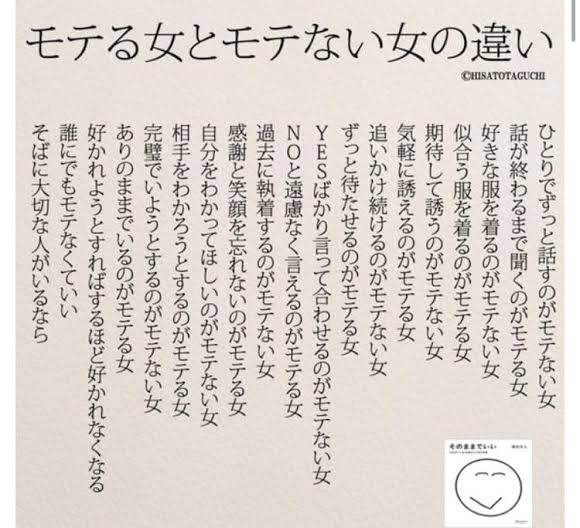 モテる女とモテない女の違い
©HISATOTAGUCHI
ひとりでずっと話すのがモテない女
話が終わるまで聞くのがモテる女
好きな服を着るのがモテない女
似合う服を着るのがモテる女
期待して誘うのがモテない女
気軽に誘えるのがモテる女
追いかけ続けるのがモテない女
ずっと待たせるのがモテる女
YESばかり言って合わせるのがモテない女
NOと遠慮なく言えるのがモテる女
過去に執着するのがモテない女
感謝と笑顔を忘れないのがモテる女
自分をわかってほしいのがモテない女
相手をわかろうとするのがモテる女
完璧でいようとするのがモテない女
ありのままでいるのがモテる女
好かれようとすればするほど好かれなくなる
誰にでもモテなくていい
そばに大切な人がいるなら
そのままでいい